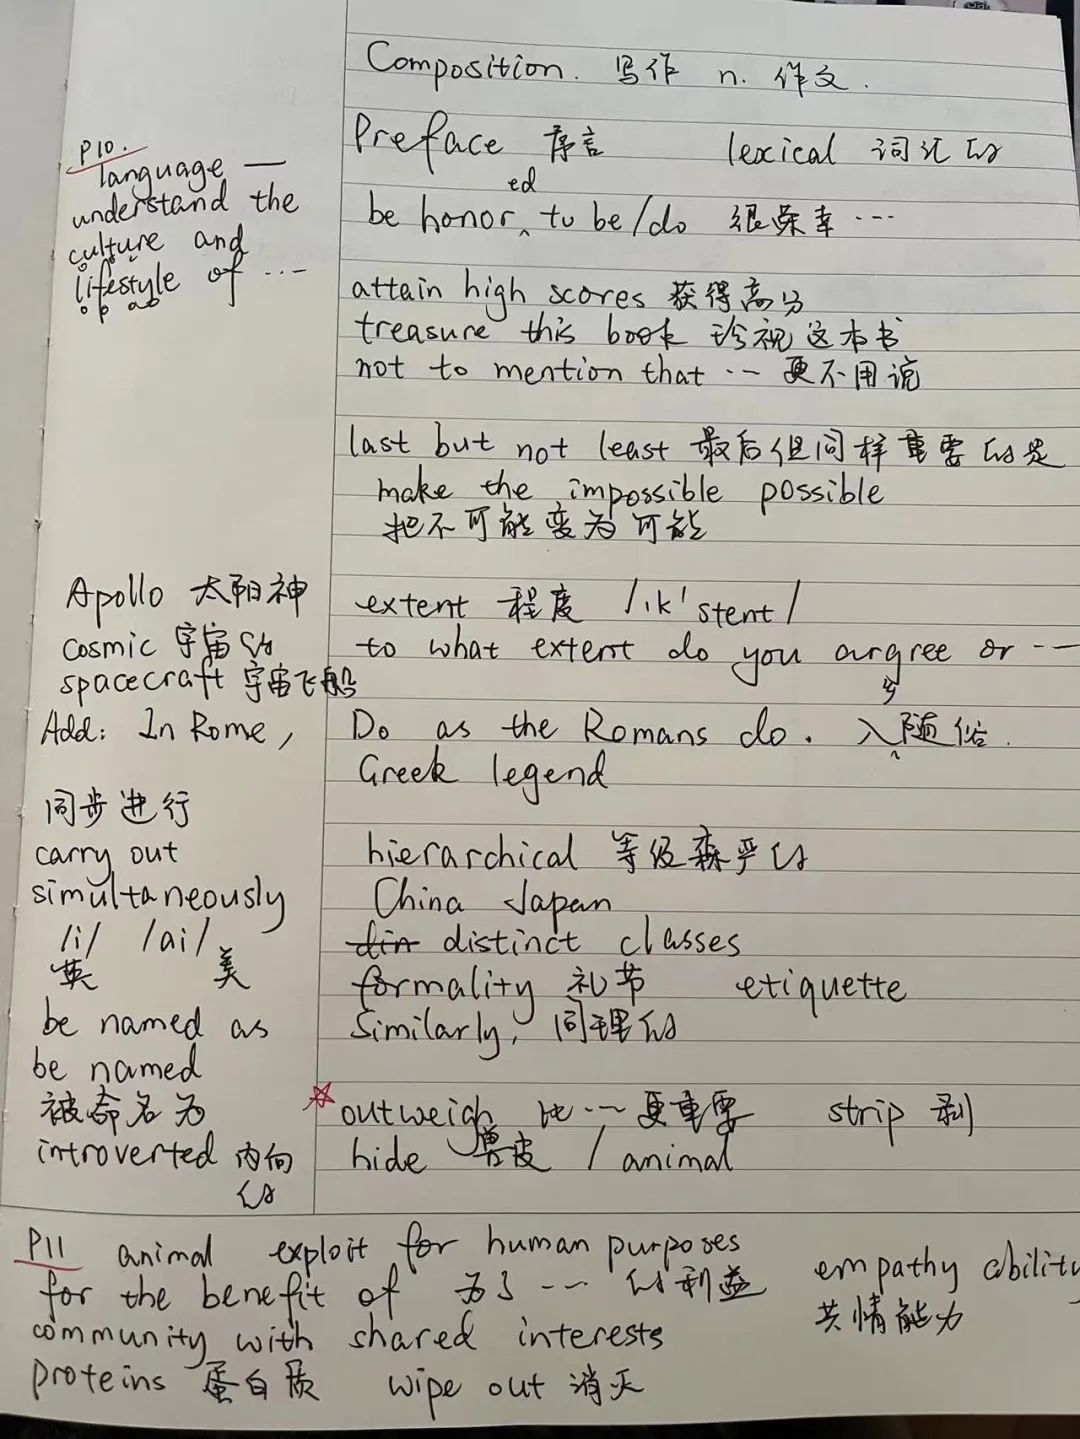 Composition. 写作 n. 作文.
Preface 序言 lexical 词汇的
be honored to be/do 很荣幸…
attain high scores 获得高分
treasure this book 珍视这本书
not to mention that … 更不用说
last but not least 最后但同样重要的是
make the impossible possible
把不可能变为可能
extent 程度 /ɪk'stent/
to what extent do you argree or …
Do as the Romans do. 入乡随俗.
Greek legend
hierarchical 等级森严的
China Japan
distinct classes
formality 礼节 etiquette
Similarly, 同理的
outweigh 比…更重要 strip 剥
hide 兽皮 / animal
P10.
language —
understand the
culture and
lifestyle of …
Apollo 太阳神
cosmic 宇宙的
spacecraft 宇宙飞船
Add: In Rome,
同步进行
carry out
simultaneously
/i/ /ai/
英 美
be named as
be named
被命名为
introverted 内向
的
P11 animal exploit for human purposes
for the benefit of 为了…的利益
community with shared interests
proteins 蛋白质 wipe out 消灭
empathy ability
共情能力